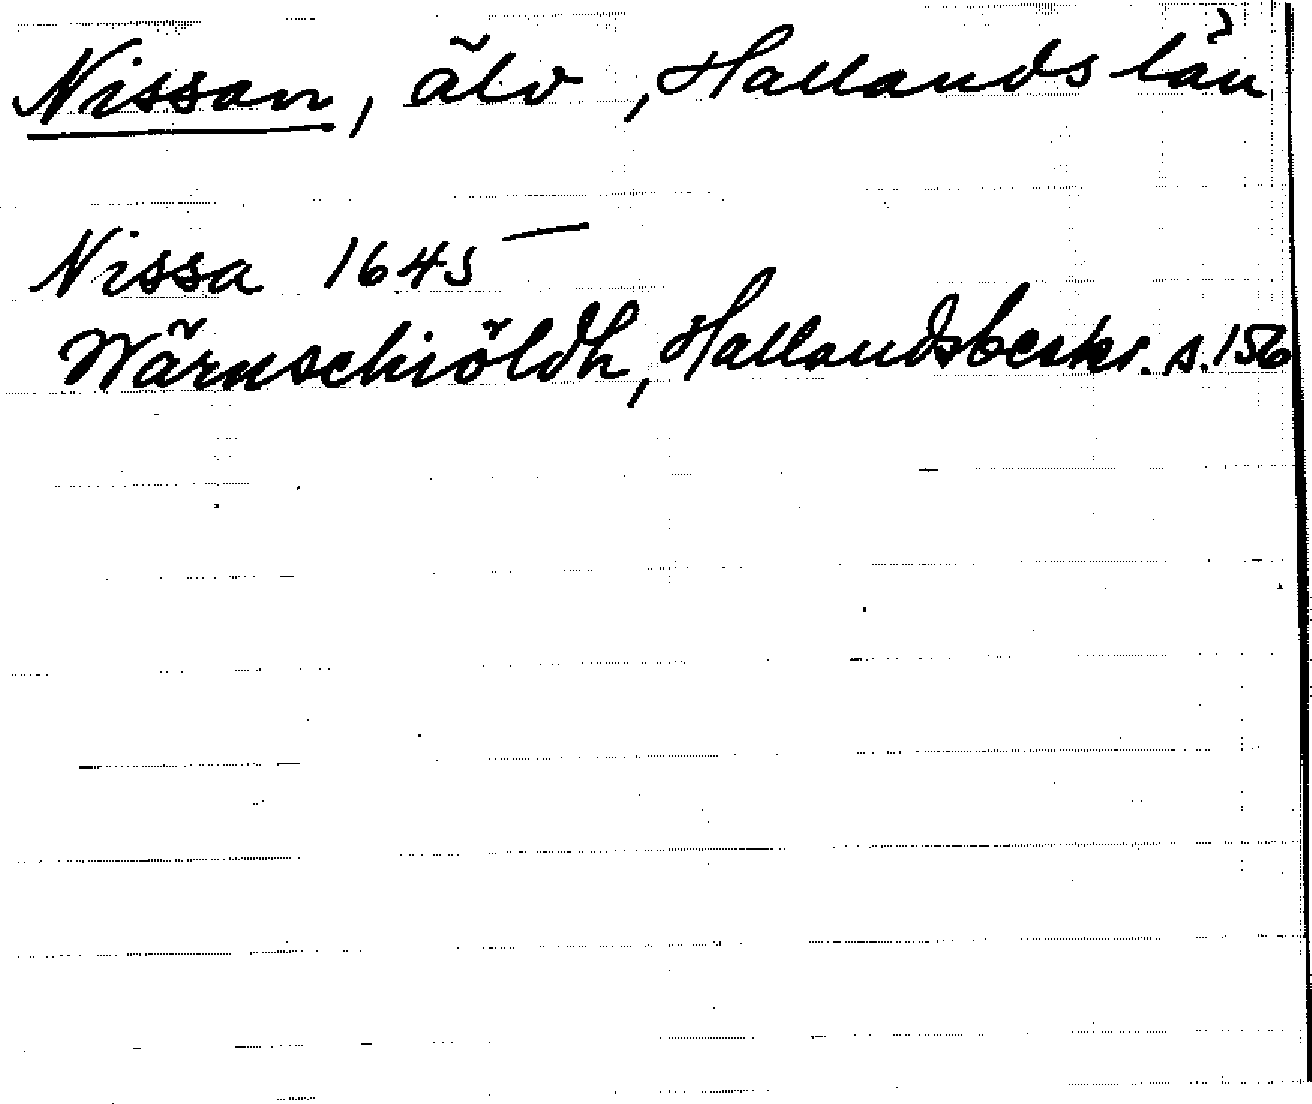 Nissan, älv, Hallands län
Nissa 1645
Wärnschiöldh, Hallandsbeskr. s. 156